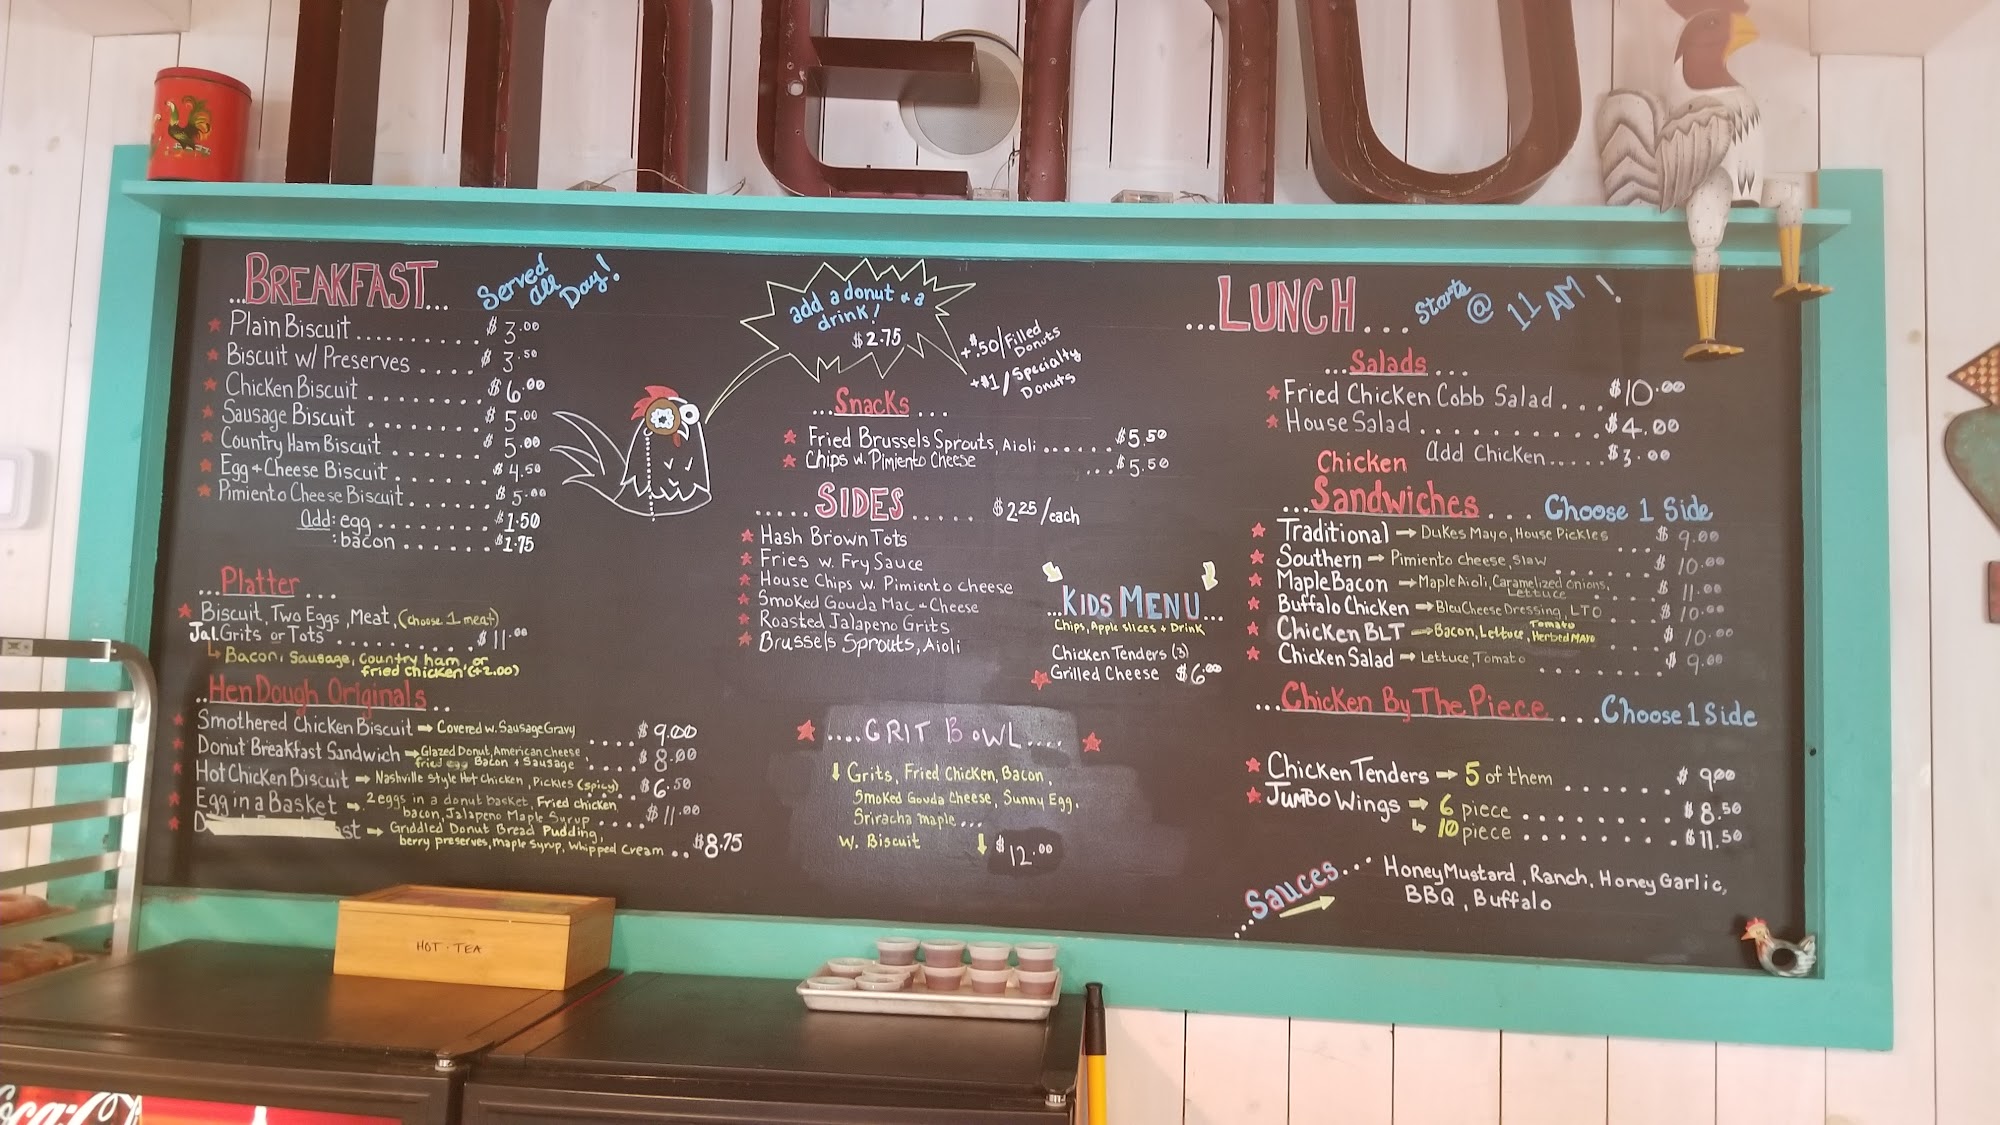 menu
...BREAKFAST...
Served All Day!
Plain Biscuit .......... $3.00
Biscuit w/ Preserves .... $3.50
Chicken Biscuit ........ $6.00
Sausage Biscuit ........ $5.00
Country Ham Biscuit ...... $5.00
Egg + Cheese Biscuit ...... $4.50
Pimiento Cheese Biscuit ..... $5.00
Add: egg ......... $1.50
: bacon ....... $1.75
...Platter...
Biscuit, Two Eggs, Meat, (choose 1 meat)
Jal. Grits or Tots .......... $11.00
Bacon, Sausage, Country ham, or
fried chicken (+2.00)
...Hen Dough Originals...
Smothered Chicken Biscuit → Covered w. Sausage Gravy .... $9.00
Donut Breakfast Sandwich → Glazed Donut, American cheese
fried egg Bacon + Sausage ..... $8.00
Hot Chicken Biscuit → Nashville Style Hot Chicken, Pickles (spicy) $6.50
Egg in a Basket → 2 eggs in a donut basket, Fried chicken
bacon, Jalapeno Maple Syrup .... $11.00
→ Griddled Donut Bread Pudding,
berry preserves, maple syrup, whipped cream .. $8.75
add a donut + a
drink!
$2.75
+ $.50/Filled
Donuts
+ $1/Specialty
Donuts
...Snacks...
Fried Brussels Sprouts, Aioli ....... $5.50
Chips w. Pimiento Cheese ... $5.50
..... SIDES ..... $2.25/each
Hash Brown Tots
Fries w. Fry Sauce
House Chips w. Pimiento Cheese
Smoked Gouda Mac + Cheese
Roasted Jalapeno Grits
Brussels Sprouts, Aioli
...KIDS MENU...
Chips, Apple slices + Drink
Chicken Tenders (3)
Grilled Cheese $6.00
....GRIT BOWL....
↓ Grits, Fried Chicken, Bacon,
Smoked Gouda Cheese, Sunny Egg,
Sriracha maple...
w. Biscuit ↓ $12.00
...LUNCH... Starts @ 11 AM!
...Salads...
Fried Chicken Cobb Salad ... $10.00
House Salad .......... $4.00
Add Chicken..... $3.00
Chicken
...Sandwiches... Choose 1 Side
Traditional → Dukes Mayo, House Pickles ... $9.00
Southern → Pimiento cheese, slaw $10.00
Maple Bacon → Maple Aioli, Caramelized onions,
Lettuce $11.00
Buffalo Chicken → Bleu Cheese Dressing, LTO $10.00
Chicken BLT → Bacon, Lettuce, Tomato
Herbed Mayo $10.00
Chicken Salad → Lettuce, Tomato $9.00
...Chicken By The Piece... Choose 1 Side
Chicken Tenders → 5 of them ...... $9.00
Jumbo Wings → 6 piece ........ $8.50
10 piece ........ $11.50
...Sauces... Honey Mustard, Ranch, Honey Garlic,
BBQ, Buffalo
HOT · TEA
Coca-Co